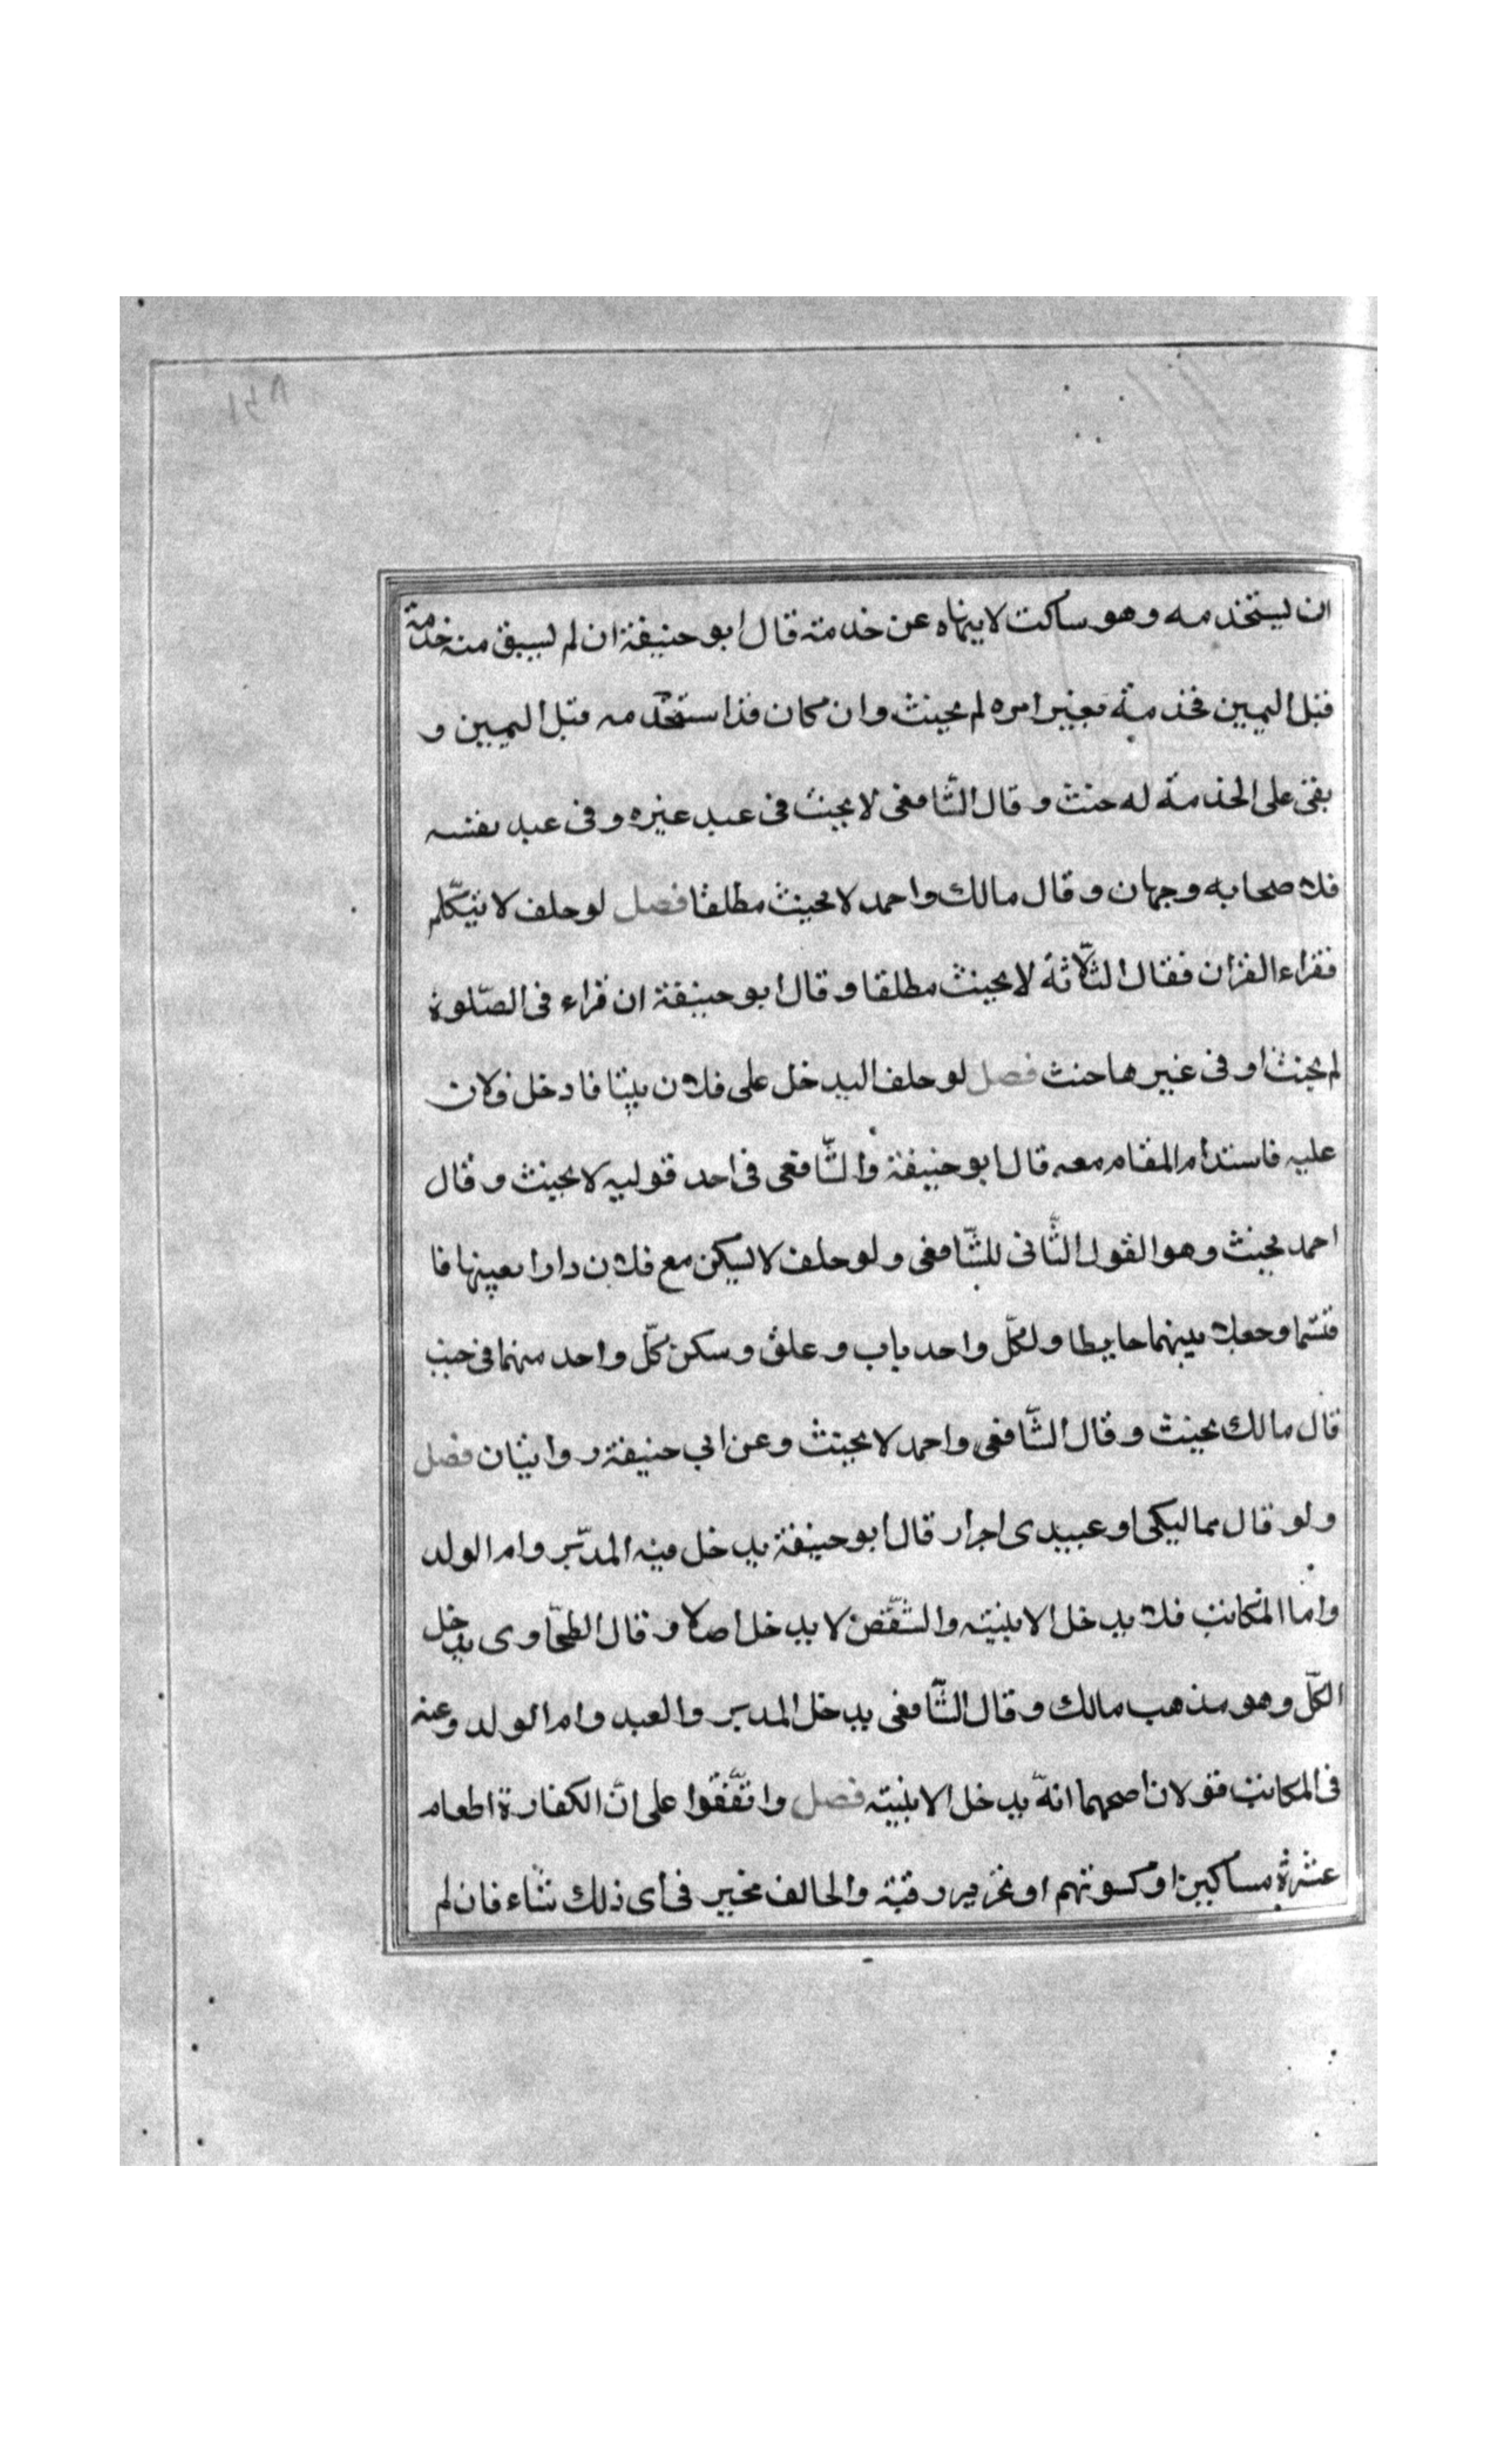 ان يستخدمه وهو ساكت لا ينهاه عن خدمته قال ابو حنيفة ان لم يسبق منه خدمة
قبل اليمين فخدمته بغير امره لم يحنث وان كان قد استخدمه قبل اليمين و
بقى على الخدمة له حنث وقال الشّافعى لا يحنث فى عبد غيره وفى عبد نفسه
فلاصحابه وجهان وقال مالك واحمد لا يحنث مطلقا فصل لو حلف لا يتكلّم
فقراء القران فقال الثّلاثة لا يحنث مطلقا وقال ابو حنيفة ان قراء فى الصّلوة
لم يحنث او فى غيرها حنث فصل لو حلف اليدخل على فلان بيتا فادخل فلان
عليه فاستدام المقام معه قال ابو حنيفة والشّافعى فى احد قوليه لا يحنث وقال
احمد يحنث وهو القول الثّانى للشّافعى ولو حلف لا يسكن مع فلان دارا بعينها فا
قتسما وجعلا بينهما حايطا ولكلّ واحد باب وغلق وسكن كلّ واحد منهما فى جنب
قال مالك يحنث وقال الشّافعى واحمد لا يحنث وعن ابى حنيفة روايتان فصل
ولو قال مماليكى او عبيدى احرار قال ابو حنيفة يدخل فيه المدبّر وام الولد
وامّا المكاتب فلا يدخل الا بنيته والشّقص لا يدخل اصلا وقال الطحّاوى يدخل
الكلّ وهو مذهب مالك وقال الشّافعى يدخل المدبر والعبد وام الولد وعنه
فى المكاتب قولان اصحهما انّه يدخل الا بنيته فصل واتّفقوا على انّ الكفارة اطعام
عشرة مساكين او كسوتهم او تحرير رقبة والحالف مخير فى اى ذلك شاء فان لم